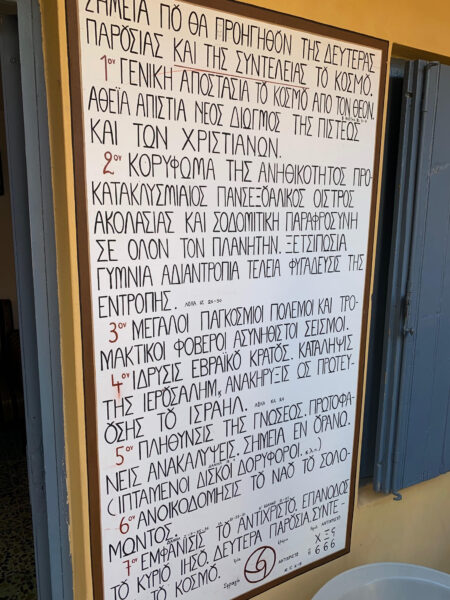 ΣΗΜΕΙΑ ΠȢ ΘΑ ΠΡΟΗΓΗΘΟΝ ΤΗΣ ΔΕΥΤΕΡΑΣ
ΠΑΡȢΣΙΑΣ ΚΑΙ ΤΗΣ ΣΥΝΤΕΛΕΙΑΣ ΤȢ ΚΟΣΜȢ.
1ον ΓΕΝΙΚΗ ΑΠΟΣΤΑΣΙΑ ΤȢ ΚΟΣΜȢ ΑΠΟ ΤΟΝ ΘΕΟΝ.
ΑΘΕΪΑ ΑΠΙΣΤΙΑ ΝΕΟΣ ΔΙΩΓΜΟΣ ΤΗΣ ΠΙΣΤΕΩΣ
ΚΑΙ ΤΩΝ ΧΡΙΣΤΙΑΝΩΝ.
2ον ΚΟΡΥΦΩΜΑ ΤΗΣ ΑΝΗΘΙΚΟΤΗΤΟΣ ΠΡΟ-
ΚΑΤΑΚΛΥΣΜΙΑΙΟΣ ΠΑΝΣΕΞȢΑΛΙΚΟΣ ΟΙΣΤΡΟΣ
ΑΚΟΛΑΣΙΑΣ ΚΑΙ ΣΟΔΟΜΙΤΙΚΗ ΠΑΡΑΦΡΟΣΥΝΗ
ΣΕ ΟΛΟΝ ΤΟΝ ΠΛΑΝΗΤΗΝ. ΞΕΤΣΙΠΩΣΙΑ
ΓΥΜΝΙΑ ΑΔΙΑΝΤΡΟΠΙΑ ΤΕΛΕΙΑ ΦΥΓΑΔΕΥΣΙΣ ΤΗΣ
ΕΝΤΡΟΠΗΣ.
3ον ΜΕΓΑΛΟΙ ΠΑΓΚΟΣΜΙΟΙ ΠΟΛΕΜΟΙ ΚΑΙ ΤΡΟ-
ΜΑΚΤΙΚΟΙ ΦΟΒΕΡΟΙ ΑΣΥΝΗΘΙΣΤΟΙ ΣΕΙΣΜΟΙ.
4ον ΙΔΡΥΣΙΣ ΕΒΡΑΪΚΟ ΚΡΑΤΟΣ. ΚΑΤΑΛΗΨΙΣ
ΤΗΣ ΙΕΡȢΣΑΛΗΜ, ΑΝΑΚΗΡΥΞΙΣ ΩΣ ΠΡΩΤΕΥ-
ΟΥΣΗΣ ΤȢ ΙΣΡΑΗΛ.
5ον ΠΛΗΘΥΝΣΙΣ ΤΗΣ ΓΝΩΣΕΟΣ. ΠΡΩΤΟΦΑ-
ΝΕΙΣ ΑΝΑΚΑΛΥΨΕΙΣ. ΣΗΜΕΙΑ ΕΝ ȢΡΑΝΩ.
(ΙΠΤΑΜΕΝΟΙ ΔΙΣΚΟΙ ΔΟΡΥΦΟΡΟΙ. κ.λ.π.)
6ον ΑΝΟΙΚΟΔΟΜΗΣΙΣ ΤȢ ΝΑȢ ΤȢ ΣΟΛΟ-
ΜΩΝΤΟΣ.
7ον ΕΜΦΑΝΙΣΙΣ ΤȢ ΑΝΤΙΧΡΙΣΤȢ. ΕΠΑΝΟΔΟΣ
ΤȢ ΚΥΡΙȢ ΙΗΣȢ. ΔΕΥΤΕΡΑ ΠΑΡȢΣΙΑ. ΣΥΝΤΕ-
ΤȢ ΚΟΣΜȢ.
ΑΝΤΙΧΡΙΣΤΟ
Χ Ξ ς
6 6 6